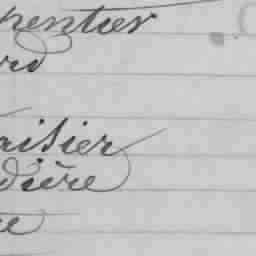 hentier
rd
aisier
dière
e